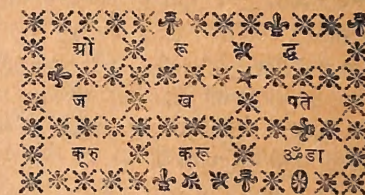 ओं रू द्ध
ज ख पते
कूरु कूरू ॐडा